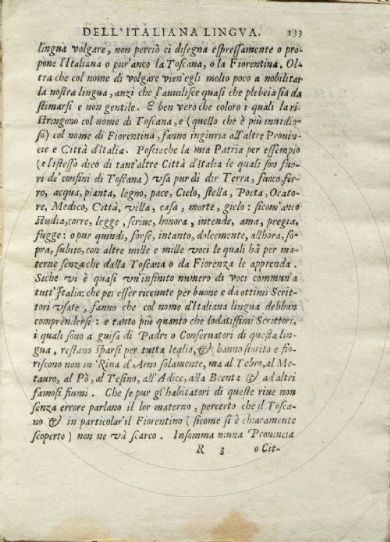 DELL'ITALIANA LINGVA. 133
lingua volgare, non perciò ci disegna espressamente o pro
pone l'Italiana o pur'anco la Toscana, o la Fiorentina. Ol
tra che col nome di volgare vien'egli molto poco a nobilitar
la nostra lingua, anzi che l'auuilisce quasi che plebeia sia da
stimarsi e non gentile. E ben vero che coloro i quali la ri-
stringono col nome di Toscana, e (quello che è più inuidio-
so) col nome di Fiorentina, fanno ingiuria all'altre Prouin-
cie e Città d'Italia. Posciache la mia Patria per essempio
(e l'istesso dico di tant'altre Città d'Italia le quali son fuo-
ri de' confini di Toscana) vsa pur di dir Terra, fuoco, fer-
ro, acqua, pianta, legno, pace, Cielo, stella, Poeta, Orato-
re, Medico, Città, villa, casa, morte, gielo: sicom'anco
studia, corre, legge, scriue, honora, intende, ama, pregia,
fugge: o pur quindi, forse, intanto, dolcemente, allhora, so-
pra, subito, con altre mille e mille voci le quali hà per ma-
terne senza che dalla Toscana o da Fiorenza le apprenda.
Siche vi è quasi vn'infinito numero di voci commun'a
tutt'Italia: che pei esser riceuute per buone e da ottimi Scrit-
tori vsate, fanno che col nome d'Italiana lingua debban
comprendersi: e tanto più quanto che lodatissimi Scrittori,
i quali sono a guisa di Padri o Conseruatori di questa lin-
gua, restano sparsi per tutta Italia, & hanno fiorito e fio-
riscono non in Riua d'Arno solamente, ma al Tebro, al Me-
tauro, al Pò, al Tesino, all'Adice, alla Brenta & ad altri
famosi fiumi. Che se pur gl'habitatori di queste riue non
senza errore parlano il lor materno, percerto che il Tosca-
no & in particular'il Fiorentino (sicome si è chiaramente
scoperto) non ne và scarco. Insomma niuna Prouincia
R 3 o Cit-